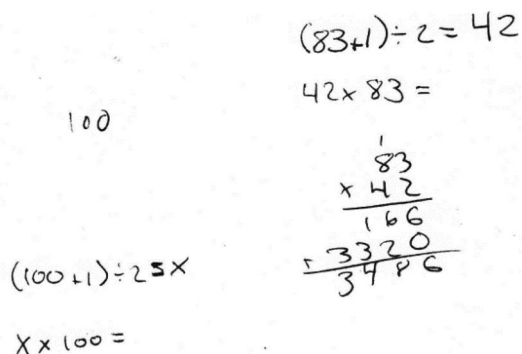 (83+1)÷2=42
42×83=
100
1
83
×42
166
+3320
3486
(100+1)÷2=x
x×100=